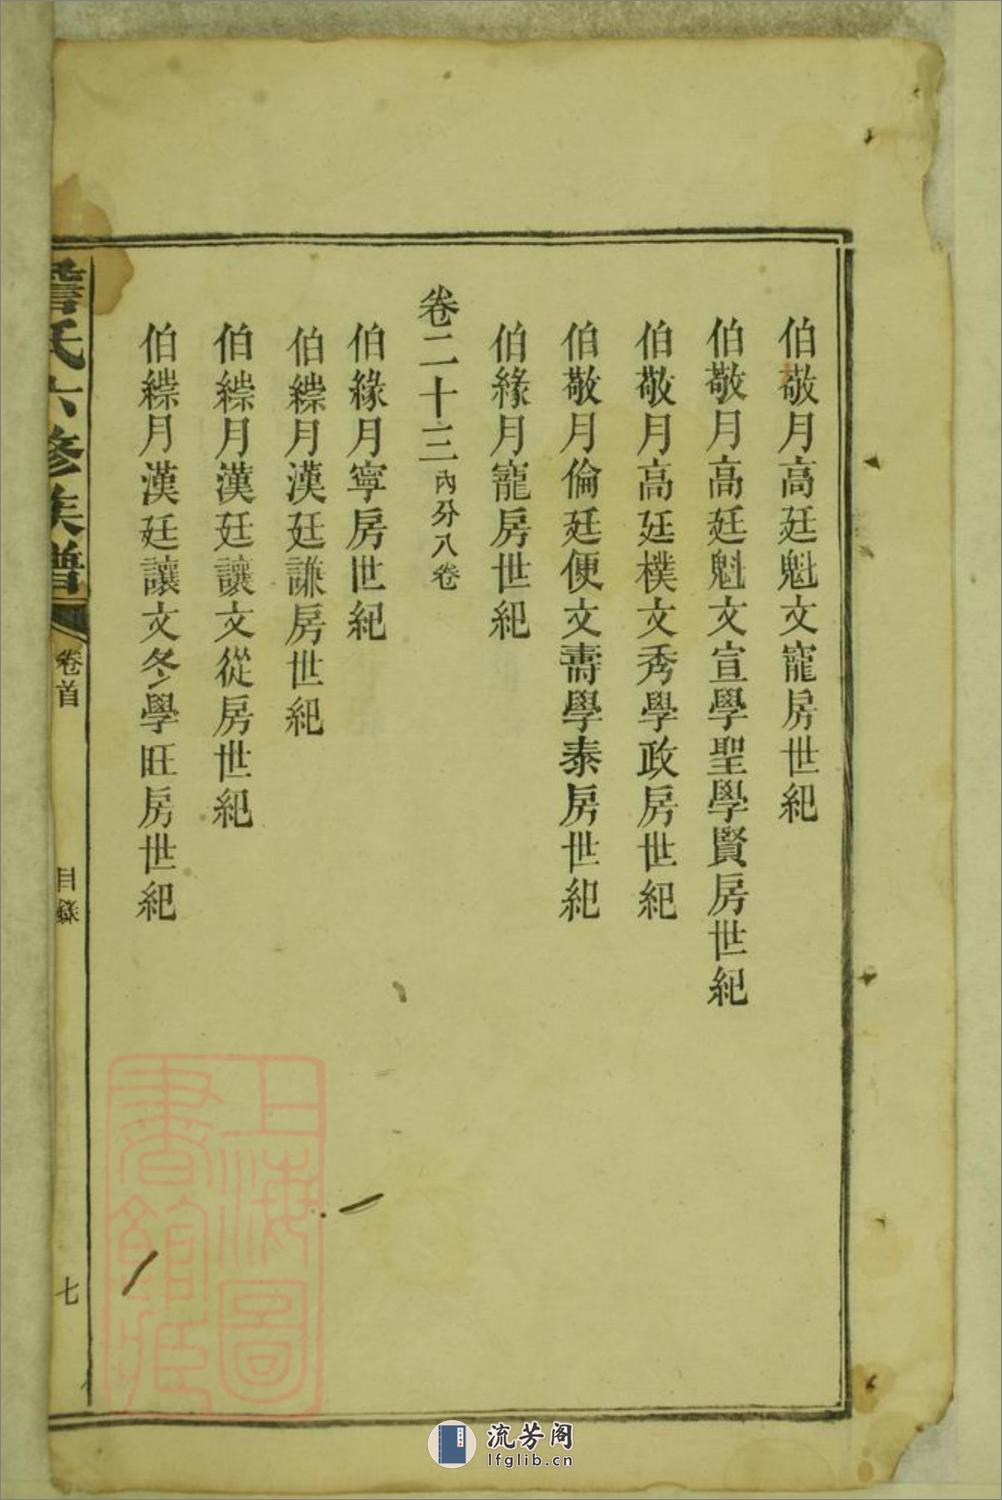 伯敬月高廷魁文寵房世紀
伯敬月高廷魁文宣學聖學賢房世紀
伯敬月高廷樸文秀學政房世紀
伯敬月倫廷便文壽學泰房世紀
伯緣月寵房世紀
卷二十三內分八卷
伯緣月寧房世紀
伯緤月漢廷謙房世紀
伯緤月漢廷讓文從房世紀
伯緤月漢廷讓文冬學旺房世紀
詹氏六修族譜
卷首
目錄
七
上海圖
書館藏
流芳阁
lfglib.cn